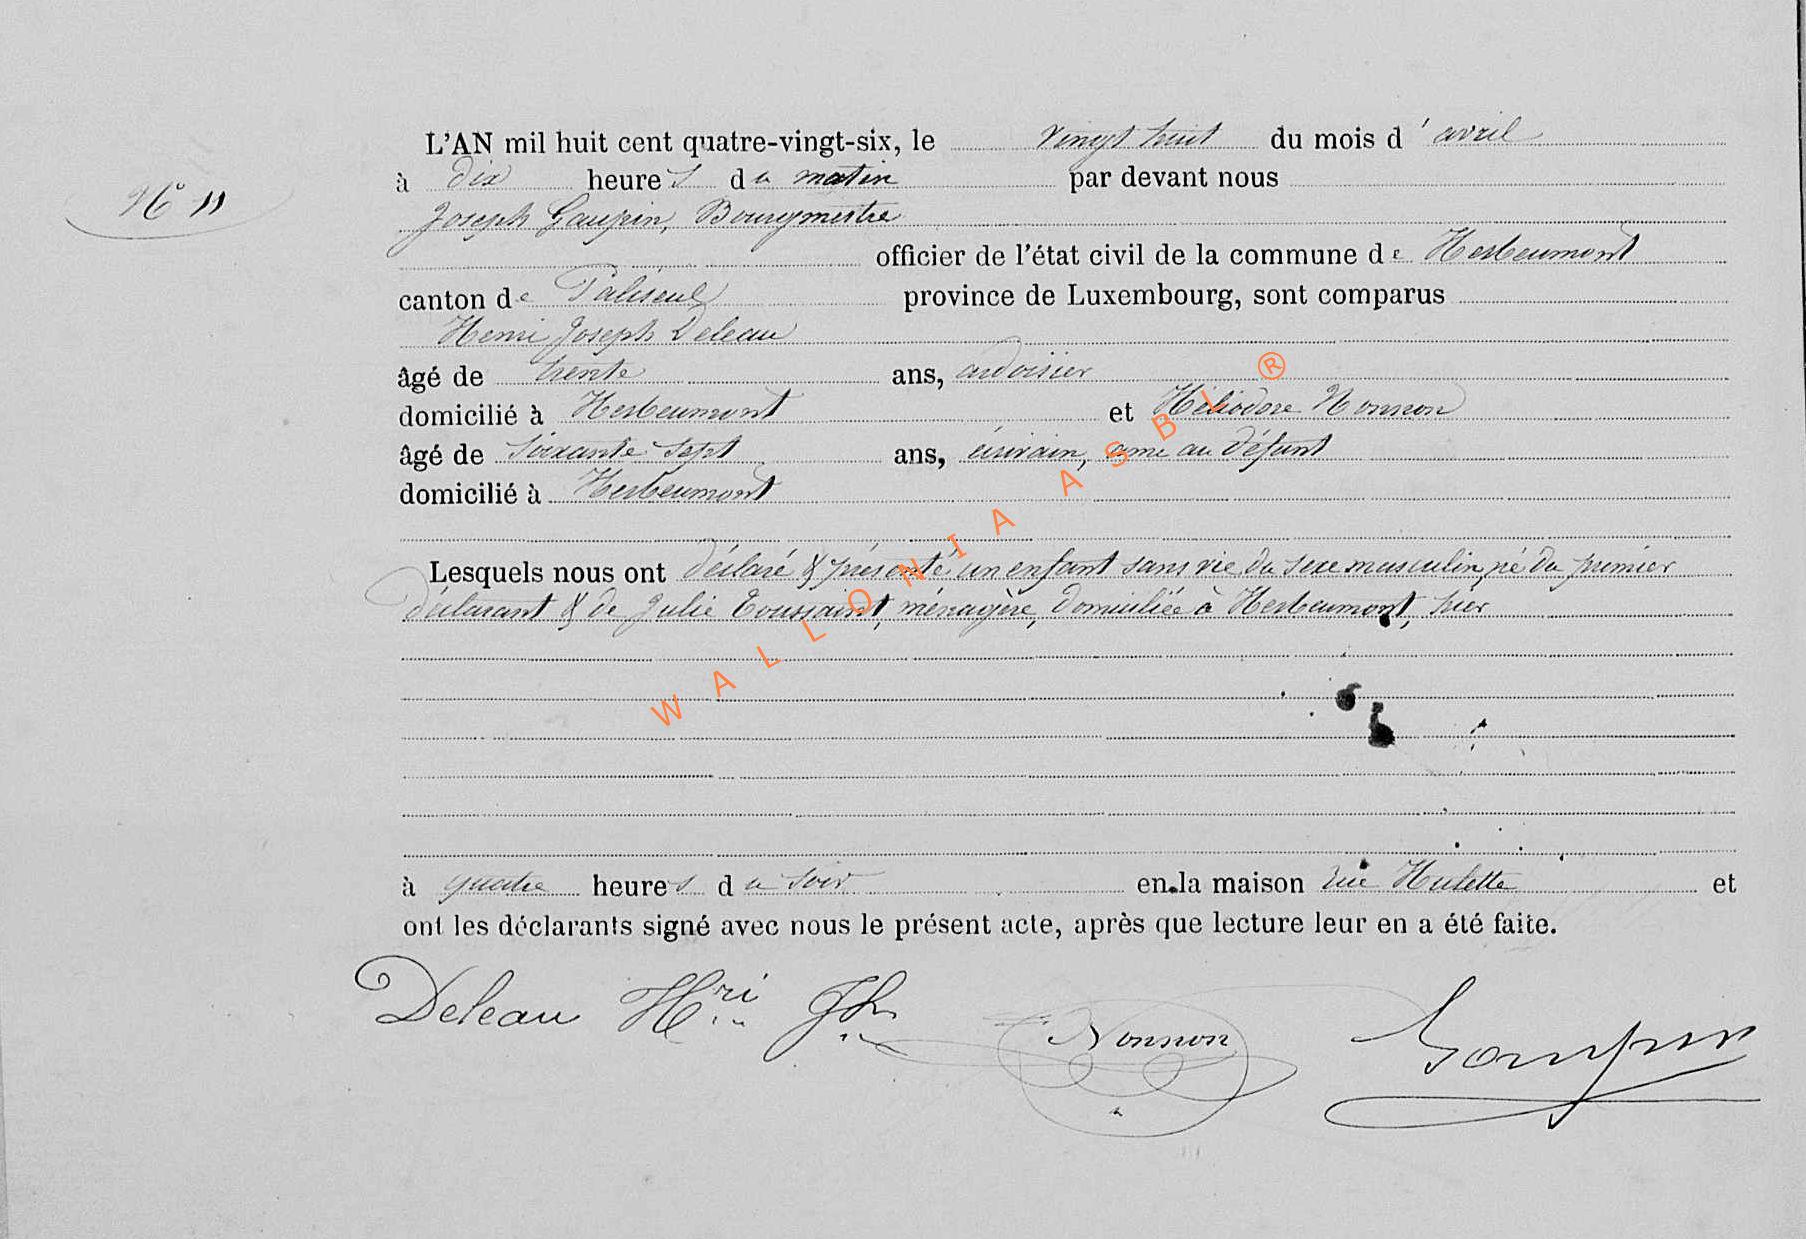 L'AN mil huit cent quatre-vingt-six, le vingt huit du mois d'avril
N° 11
à dix heures du matin par devant nous
Joseph Gaupin, Bourgmestre
officier de l'état civil de la commune de Herbeumont
canton de Paliseul province de Luxembourg, sont comparus
Henri Joseph Deleau
âgé de trente ans, ardoisier
domicilié à Herbeumont et Héliodore Nonnon
âgé de soixante sept ans, écrivain, ami au défunt
domicilié à Herbeumont
Lesquels nous ont déclaré & présenté un enfant sans vie du sexe masculin, né du premier
déclarant & de Julie Toussaint, ménagère, domiciliée à Herbeumont, hier
à quatre heures du soir en la maison rue Hulette et
ont les déclarants signé avec nous le présent acte, après que lecture leur en a été faite.
Deleau Hri Jh Nonnon Gaupin
WALLONIA ASBL ®